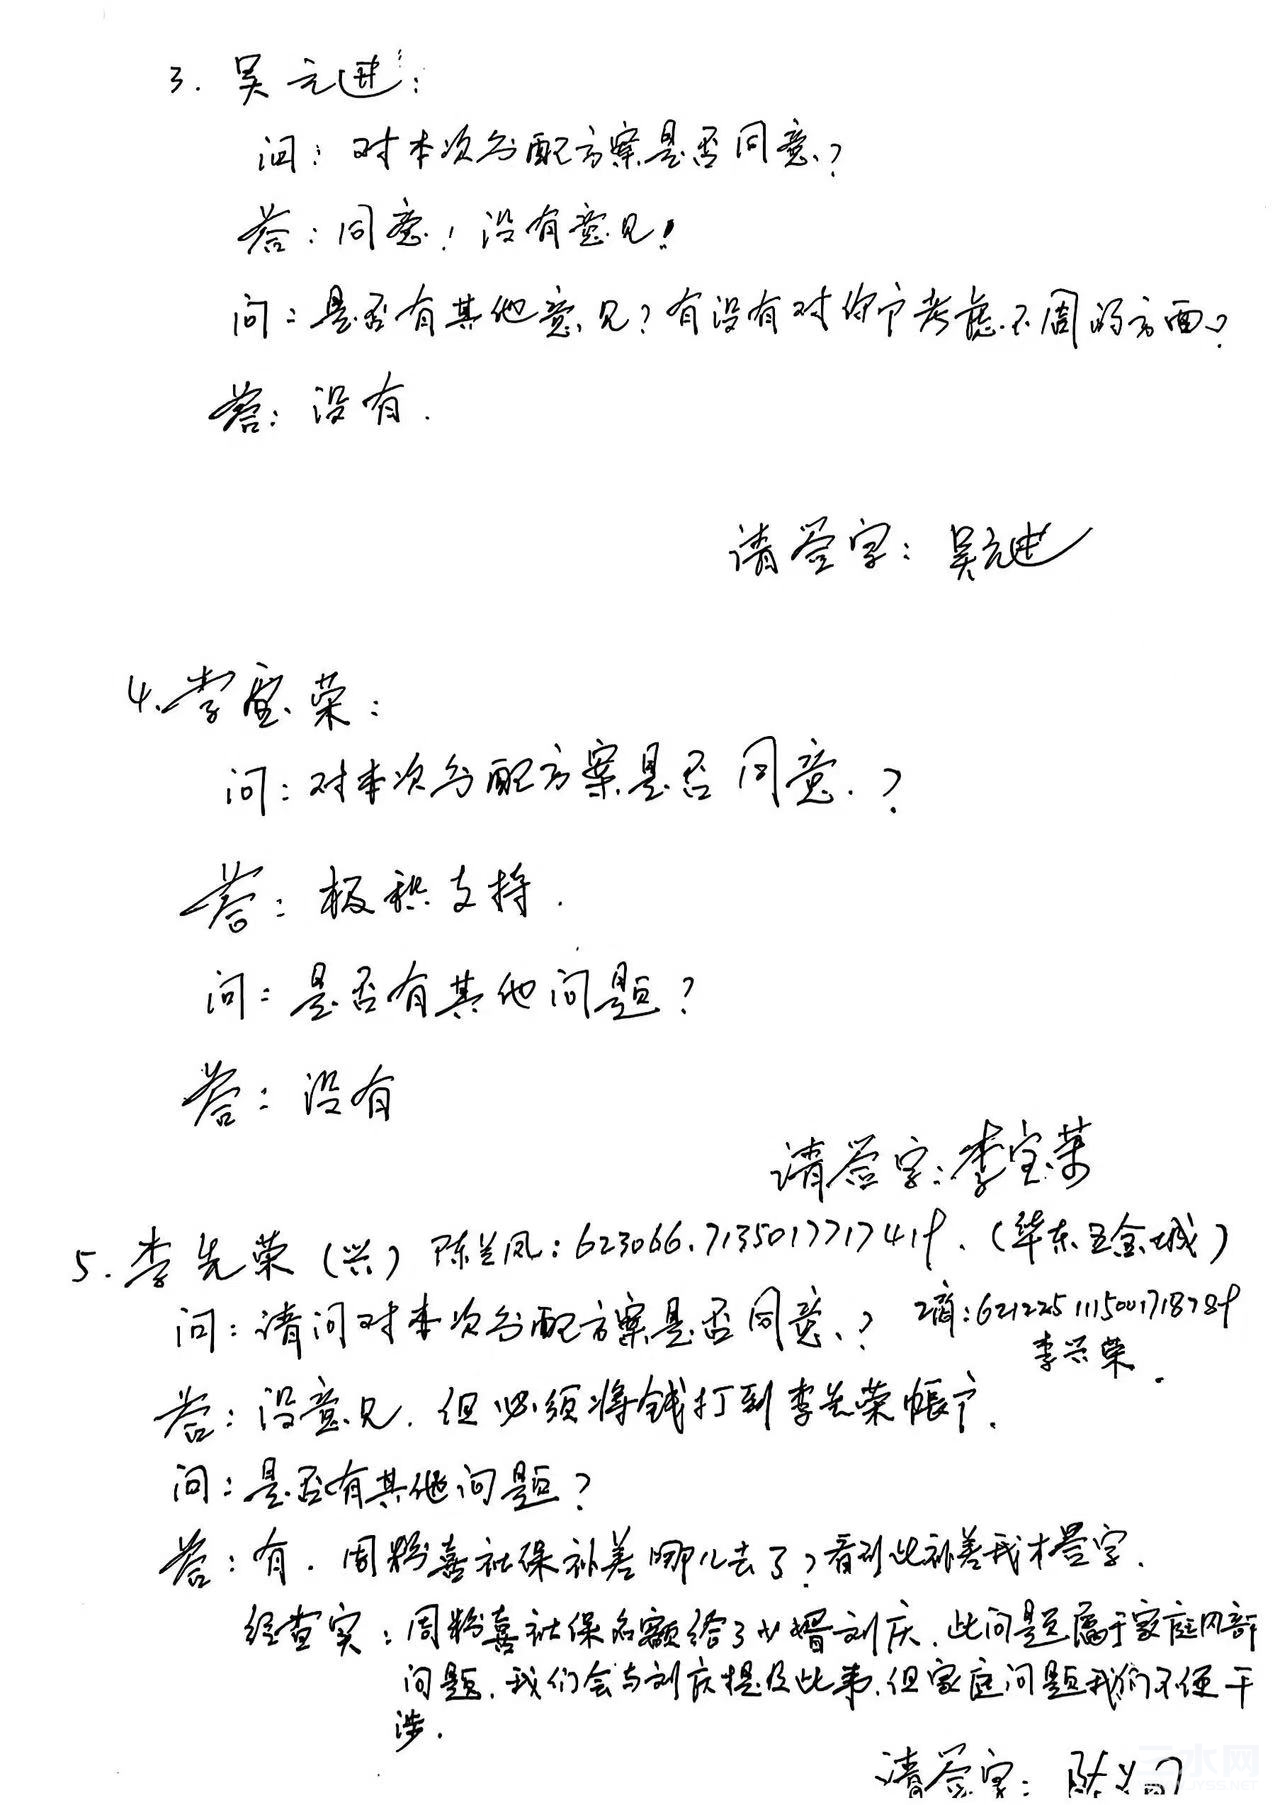 3. 吴元进：
问：对本次分配方案是否同意？
答：同意！没有意见！
问：是否有其他意见？有没有对你户考虑不周的方面？
答：没有．
请签字：吴元进
4. 李宝荣：
问：对本次分配方案是否同意．？
答：极积支持．
问：是否有其他问题？
答：没有
请签字：李宝荣
5. 李先荣（兴）陈兰凤：623066.7135017717419．（华东五金城）
问：请问对本次分配方案是否同意．？
工商：6212251115001718789
李兴荣．
答：没意见．但必须将钱打到李先荣帐户．
问：是否有其他问题？
答：有．周粉喜社保补差哪儿去了？看到此补差我才签字．
经查实：周粉喜社保名额给了女婿刘庆．此问题属于家庭内部
问题．我们会与刘庆提及此事．但家庭问题我们不便干
涉．
请签字：陈
三水网
JYSS.NET